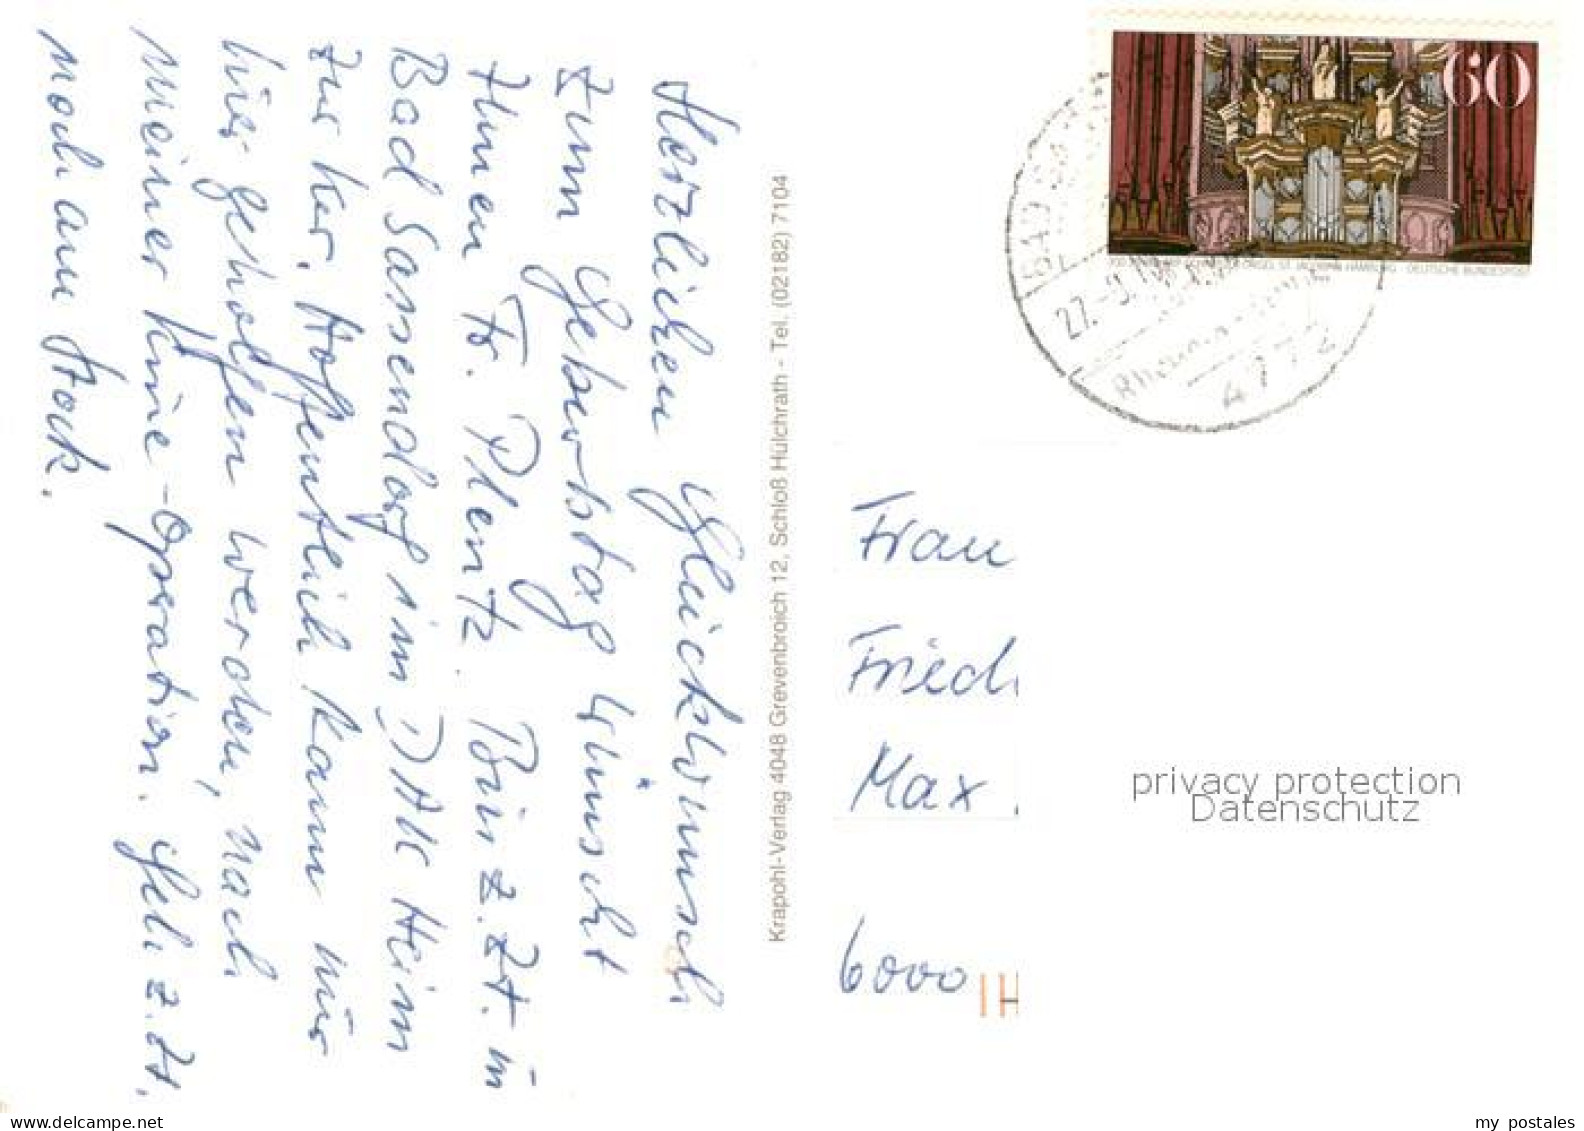 Herzlichen Glückwunsch
zum Geburtstag wünscht
Ihnen Fr. Plentz. Bin z. Zt. in
Bad Sassendorf im DAK Heim
zur Kur. Hoffentlich kann mir
hier geholfen werden, nach
meiner Knie-Operation. Geh z. Zt.
noch am Stock.
Krapohl-Verlag 4048 Grevenbroich 12, Schloß Hülchrath - Tel. (02182) 7104
60
ORGEL ST. JACOBI HAMBURG · DEUTSCHE BUNDESPOST
BAD SA
27.-9.
4772
Frau
Fried
Max
6000
privacy protection
Datenschutz
my postales